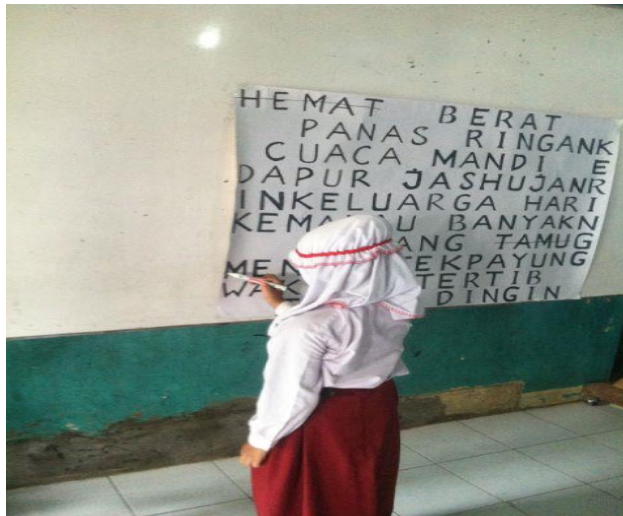 HEMAT BERAT
PANAS RINGANK
CUACA MANDI E
DAPUR JASHUJANR
INKELUARGA HARI
KEMA AU BANYAKN
ANG TAMUG
MEN EKPAYUNG
WA TERTIB
DINGIN